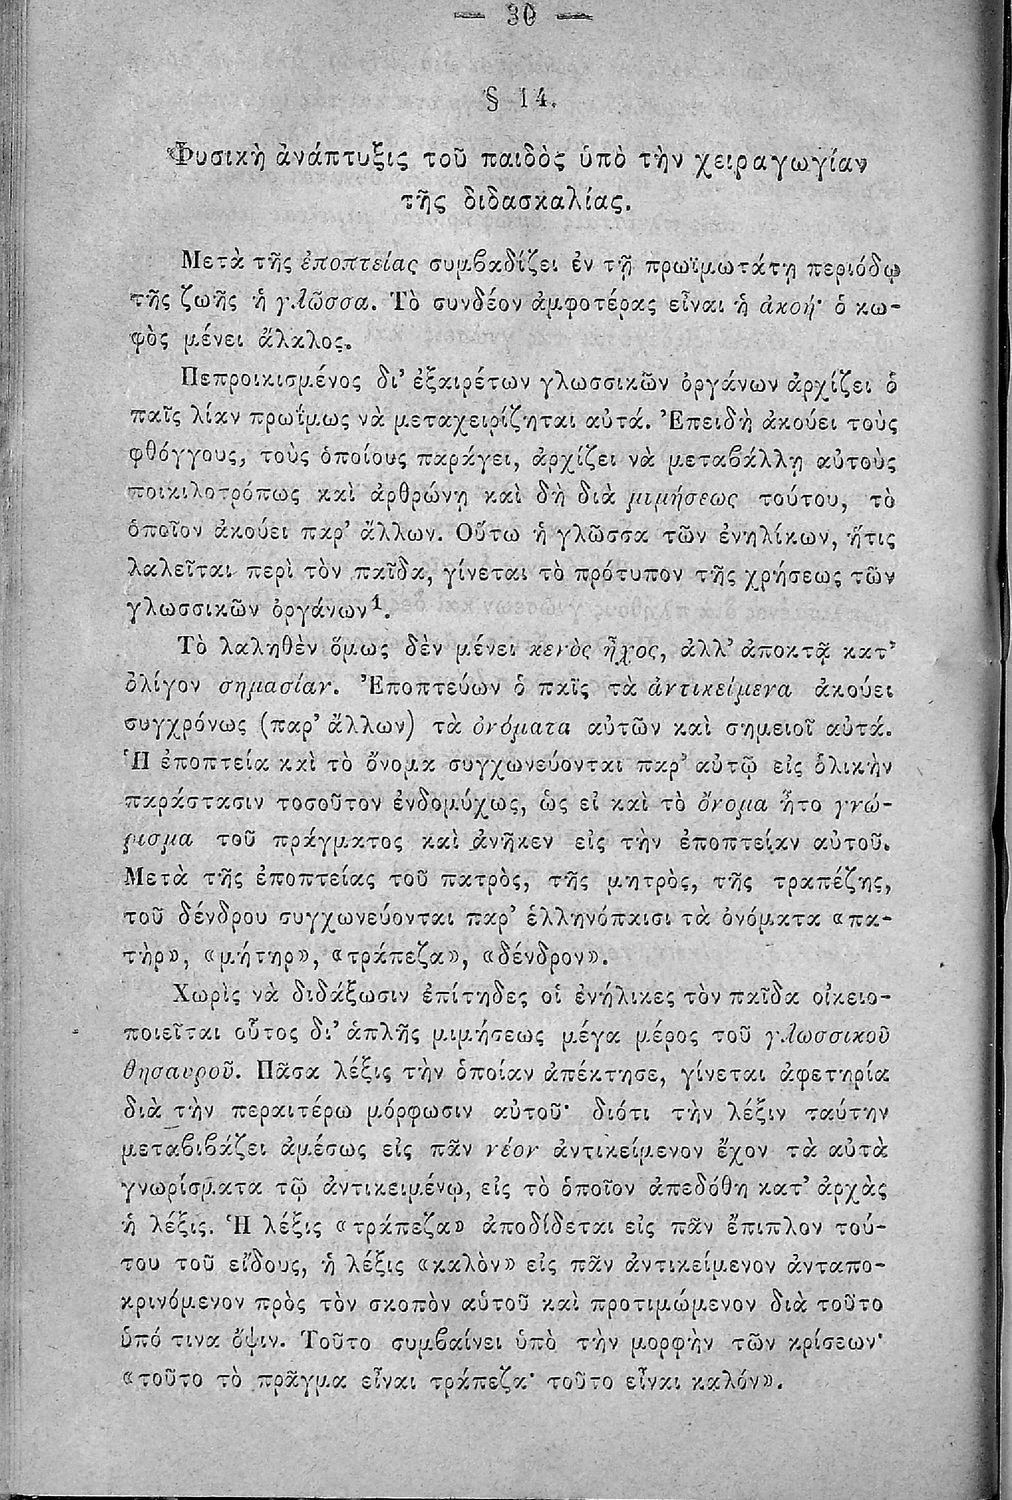 — 30 —
§ 14.
Φυσικὴ ἀνάπτυξις τοῦ παιδὸς ὑπὸ τὴν χειραγωγίαν
τῆς διδασκαλίας.
Μετὰ τῆς ἐποπτείας συμβαδίζει ἐν τῇ πρωϊμωτάτῃ περιόδῳ
τῆς ζωῆς ἡ γλῶσσα. Τὸ συνδέον ἀμφοτέρας εἶναι ἡ ἀκοή· ὁ κω-
φὸς μένει ἄλαλος.
Πεπροικισμένος δι’ ἐξαιρέτων γλωσσικῶν ὀργάνων ἀρχίζει ὁ
παῖς λίαν πρωΐμως νὰ μεταχειρίζηται αὐτά. Ἐπειδὴ ἀκούει τοὺς
φθόγγους, τοὺς ὁποίους παράγει, ἀρχίζει νὰ μεταβάλλῃ αὐτοὺς
ποικιλοτρόπως καὶ ἀρθρώνῃ καὶ δὴ διὰ μιμήσεως τούτου, τὸ
ὁποῖον ἀκούει παρ’ ἄλλων. Οὕτω ἡ γλῶσσα τῶν ἐνηλίκων, ἥτις
λαλεῖται περὶ τὸν παῖδα, γίνεται τὸ πρότυπον τῆς χρήσεως τῶν
γλωσσικῶν ὀργάνων¹.
Τὸ λαληθὲν ὅμως δὲν μένει κενὸς ἦχος, ἀλλ’ ἀποκτᾷ κατ’
ὀλίγον σημασίαν. Ἐποπτεύων ὁ παῖς τὰ ἀντικείμενα ἀκούει
συγχρόνως (παρ’ ἄλλων) τὰ ὀνόματα αὐτῶν καὶ σημειοῖ αὐτά.
Ἡ ἐποπτεία καὶ τὸ ὄνομα συγχωνεύονται παρ’ αὐτῷ εἰς ὁλικὴν
παράστασιν τοσοῦτον ἐνδομύχως, ὡς εἰ καὶ τὸ ὄνομα ἦτο γνώ-
ρισμα τοῦ πράγματος καὶ ἀνῆκεν εἰς τὴν ἐποπτείαν αὐτοῦ.
Μετὰ τῆς ἐποπτείας τοῦ πατρὸς, τῆς μητρὸς, τῆς τραπέζης,
τοῦ δένδρου συγχωνεύονται παρ’ ἑλληνόπαισι τὰ ὀνόματα «πα-
τὴρ», «μήτηρ», «τράπεζα», «δένδρον».
Χωρὶς νὰ διδάξωσιν ἐπίτηδες οἱ ἐνήλικες τὸν παῖδα οἰκειο-
ποιεῖται οὗτος δι’ ἁπλῆς μιμήσεως μέγα μέρος τοῦ γλωσσικοῦ
θησαυροῦ. Πᾶσα λέξις τὴν ὁποίαν ἀπέκτησε, γίνεται ἀφετηρία
διὰ τὴν περαιτέρω μόρφωσιν αὐτοῦ· διότι τὴν λέξιν ταύτην
μεταβιβάζει ἀμέσως εἰς πᾶν νέον ἀντικείμενον ἔχον τὰ αὐτὰ
γνωρίσματα τῷ ἀντικειμένῳ, εἰς τὸ ὁποῖον ἀπεδόθη κατ’ ἀρχὰς
ἡ λέξις. Ἡ λέξις «τράπεζα» ἀποδίδεται εἰς πᾶν ἔπιπλον τού-
του τοῦ εἴδους, ἡ λέξις «καλὸν» εἰς πᾶν ἀντικείμενον ἀνταπο-
κρινόμενον πρὸς τὸν σκοπὸν αὑτοῦ καὶ προτιμώμενον διὰ τοῦτο
ὑπό τινα ὄψιν. Τοῦτο συμβαίνει ὑπὸ τὴν μορφὴν τῶν κρίσεων·
«τοῦτο τὸ πρᾶγμα εἶναι τράπεζα· τοῦτο εἶναι καλόν».